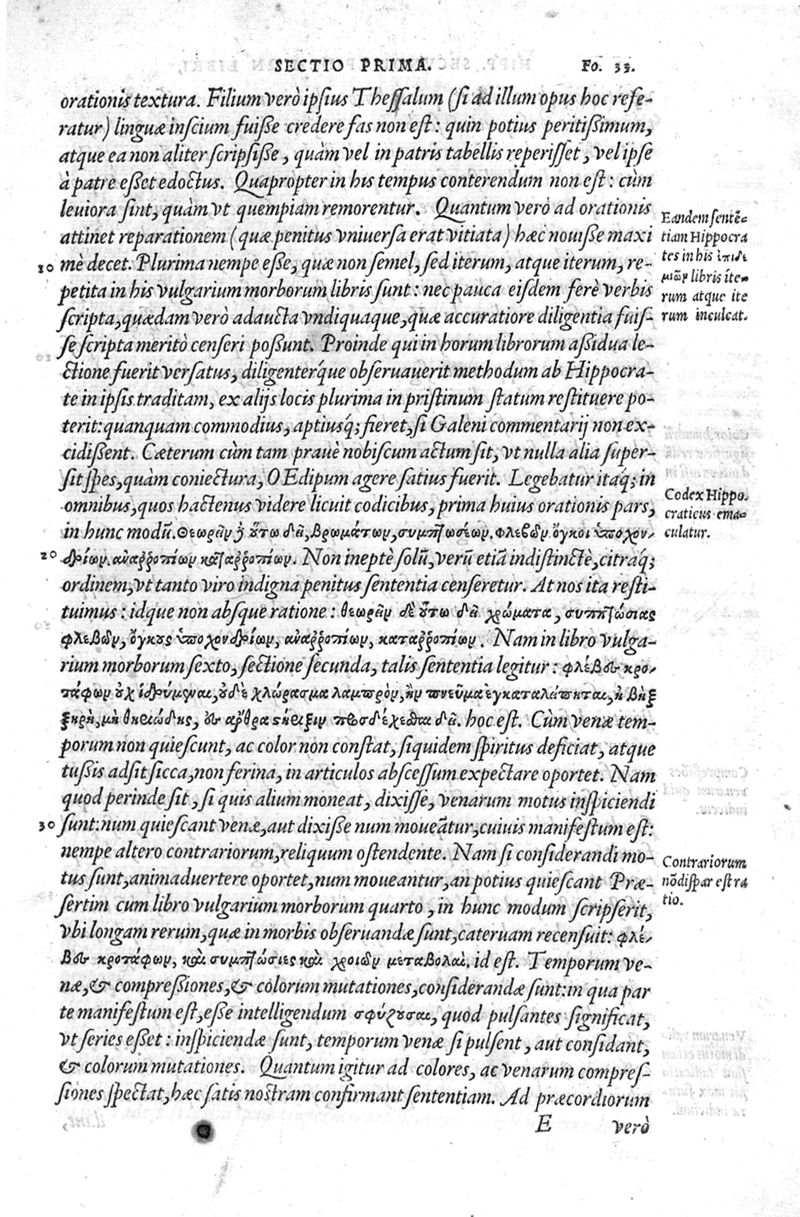 SECTIO PRIMA. Fo. 33.
orationis textura. Filium verò ipsius Thessalum (si ad illum opus hoc refe-
ratur) linguæ inscium fuisse credere fas non est: quin potius peritissimum,
atque ea non aliter scripsisse, quàm vel in patris tabellis reperisset, vel ipse
à patre esset edoctus. Quapropter in his tempus conterendum non est: cùm
leuiora sint, quàm vt quempiam remorentur. Quantum verò ad orationis
attinet reparationem (quæ penitus vniuersa erat vitiata) hæc nouisse maxi
10 mè decet. Plurima nempe esse, quæ non semel, sed iterum, atque iterum, re-
petita in his vulgarium morborum libris sunt: nec pauca eisdem ferè verbis
scripta, quædam verò adaucta vndiquaque, quæ accuratiore diligentia fuis-
se scripta meritò censeri possunt. Proinde qui in horum librorum assidua le-
ctione fuerit versatus, diligenterq́ue obseruauerit methodum ab Hippocra-
te in ipsis traditam, ex alijs locis plurima in pristinum statum restituere po-
terit: quanquam commodius, aptiusq́; fieret, si Galeni commentarij non ex-
cidissent. Cæterum cùm tam prauè nobiscum actum sit, vt nulla alia super-
sit spes, quàm coniectura, OEdipum agere satius fuerit. Legebatur itaq́; in
omnibus, quos hactenus videre licuit codicibus, prima huius orationis pars,
in hunc modũ. Θεωρεῖν δὲ οὕτω δεῖ, βρωμάτων, συμπτωσέων, φλεβῶν ὄγκοι ὑποχον-
20 δρίων, ἀναῤῥοπίων καταῤῥοπίων. Non ineptè solũ, verũ etiã indistinctè, citraq́;
ordinem, vt tanto viro indigna penitus sententia censeretur. At nos ita resti-
tuimus: idque non absque ratione: θεωρεῖν δὲ οὕτω δεῖ χρώματα, συμπτώσιας
φλεβῶν, ὄγκους ὑποχονδρίων, ἀναῤῥοπίων, καταῤῥοπίων. Nam in libro vulga-
rium morborum sexto, sectione secunda, talis sententia legitur: φλέβες κρο-
τάφων οὐχ ἱδρύμεναι, οὐδὲ χλώρασμα λαμπρὸν, ἢν πνεῦμα ἐγκαταλίπηται, ἢ βὴξ
ξηρὴ, μὴ θηριώδης, ἐς ἄρθρα στήριξιν προσδέχεσθαι δεῖ. hoc est. Cùm venæ tem-
porum non quiescunt, ac color non constat, siquidem spiritus deficiat, atque
tussis adsit sicca, non ferina, in articulos abscessum expectare oportet. Nam
quod perinde sit, si quis alium moneat, dixisse, venarum motus inspiciendi
30 sunt: num quiescant venæ, aut dixisse num moueãtur, cuiuis manifestum est:
nempe altero contrariorum, reliquum ostendente. Nam si considerandi mo-
tus sunt, animaduertere oportet, num moueantur, an potius quiescant Præ-
sertim cum libro vulgarium morborum quarto, in hunc modum scripserit,
vbi longam rerum, quæ in morbis obseruandæ sunt, cateruam recensuit: φλέ-
βες κροτάφων, καὶ συμπτώσιες καὶ χροιῶν μεταβολαί. id est. Temporum ve-
næ, & compressiones, & colorum mutationes, considerandæ sunt: in qua par
te manifestum est, esse intelligendum σφύζουσαι, quod pulsantes significat,
vt series esset: inspiciendæ sunt, temporum venæ si pulsent, aut considant,
& colorum mutationes. Quantum igitur ad colores, ac venarum compres-
siones spectat, hæc satis nostram confirmant sententiam. Ad præcordiorum
E verò
Eandem sentē-
tiam Hippocra
tes in his ἐπιδη
μιῶν libris ite-
rum atque ite
rum inculcat.
Codex Hippo.
craticus ema-
culatur.
Contrariorum
nõ dispar est ra
tio.